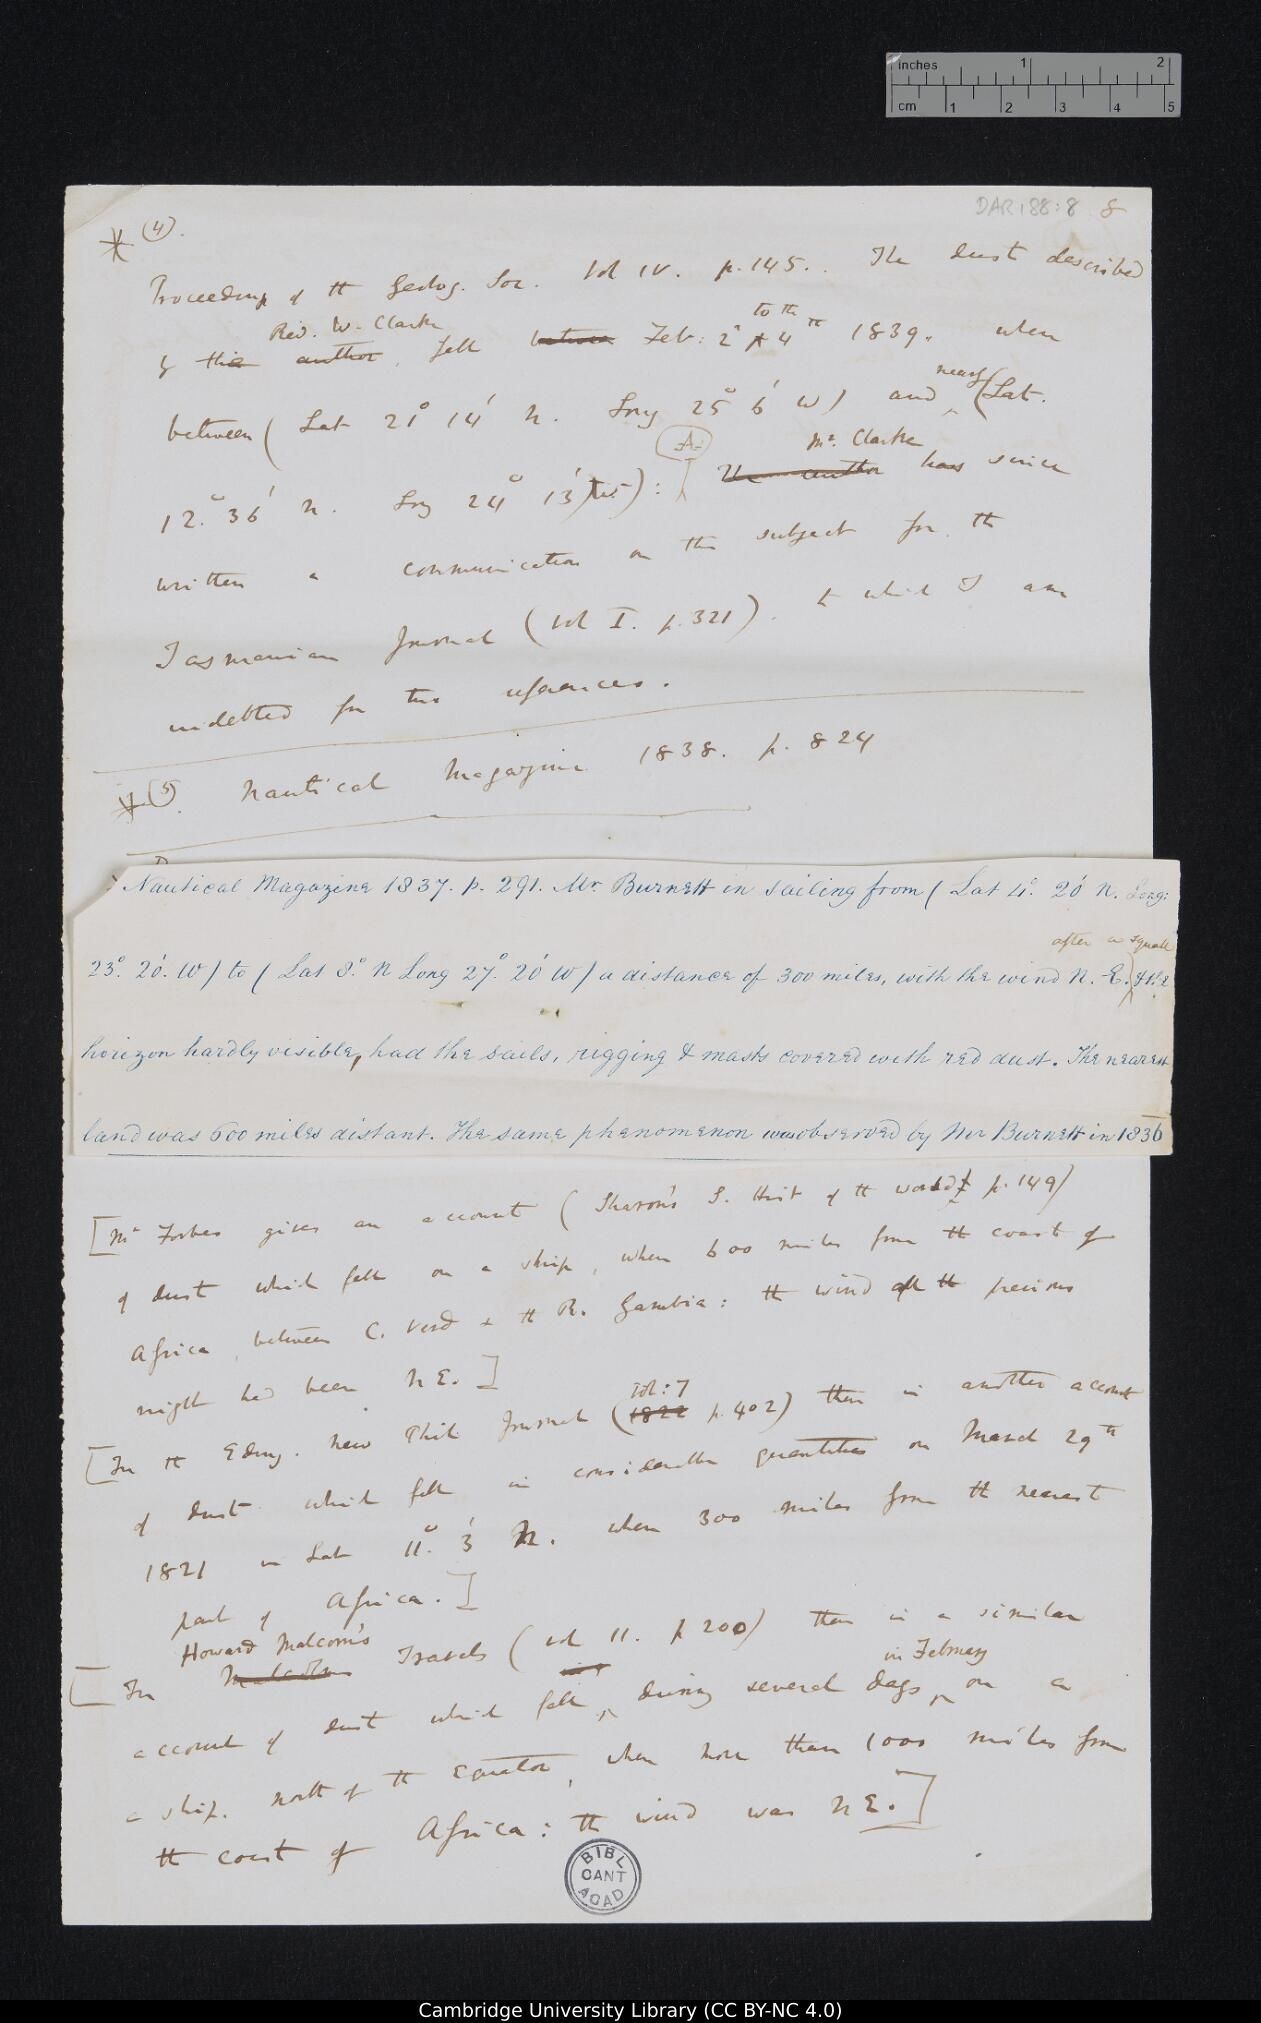 inches 1 2
cm 1 2 3 4 5
DAR 188:8 8
(4).
Proceedings of tt Geolog. Soc. Vol IV. p. 145. The dust described
Rev. W. Clarke to the
by this author, fell between Feb: 2d & 4th 1839. when
nearly
between ( Lat 21° 14' N. Long 25° 6' W) and (Lat.
A Mr. Clarke
12.° 36' N. Long 24° 13' W): The author has since
written a communication on this subject for the
Tasmanian Journal (Vol I. p. 321). to which I am
indebted for two references.
(5). Nautical Magazine 1838. p. 824
Nautical Magazine 1837. p. 291. Mr. Burnett in sailing from ( Lat 4°. 20' N. Long:
after a squall
23°. 20'. W) to ( Lat 8.° N Long 27°. 20' W) a distance of 300 miles, with the wind N. E. & the
horizon hardly visible, had the sails, rigging & masts covered with red dust. The nearest
land was 600 miles distant. The same phenomenon was observed by Mr Burnett in 1836
[Mr Forbes gives an account ( Sharon's S. Hist of tt world p. 149)
of dust which fell on a ship, when 600 miles from tt coast of
Africa, between C. Verd & tt R. Gambia: tt wind all tt previous
night had been N E.]
vol: 7
[In tt Eding. New Phil Journal (1822 p. 402) there is another account
of dust which fell in considerable quantities on March 29th
1821 in Lat 11.° 3' N. when 300 miles from tt nearest
part of Africa.]
Howard Malcom's
[In Malcolm Travels ( vol 11. p 200) there is a similar
in February
account of dust which fell, during several days, on a
a ship. north of tt Equator, when more than 1000 miles from
tt coast of Africa: tt wind was N E.]
BIBL
CANT
ACAD
Cambridge University Library (CC BY-NC 4.0)